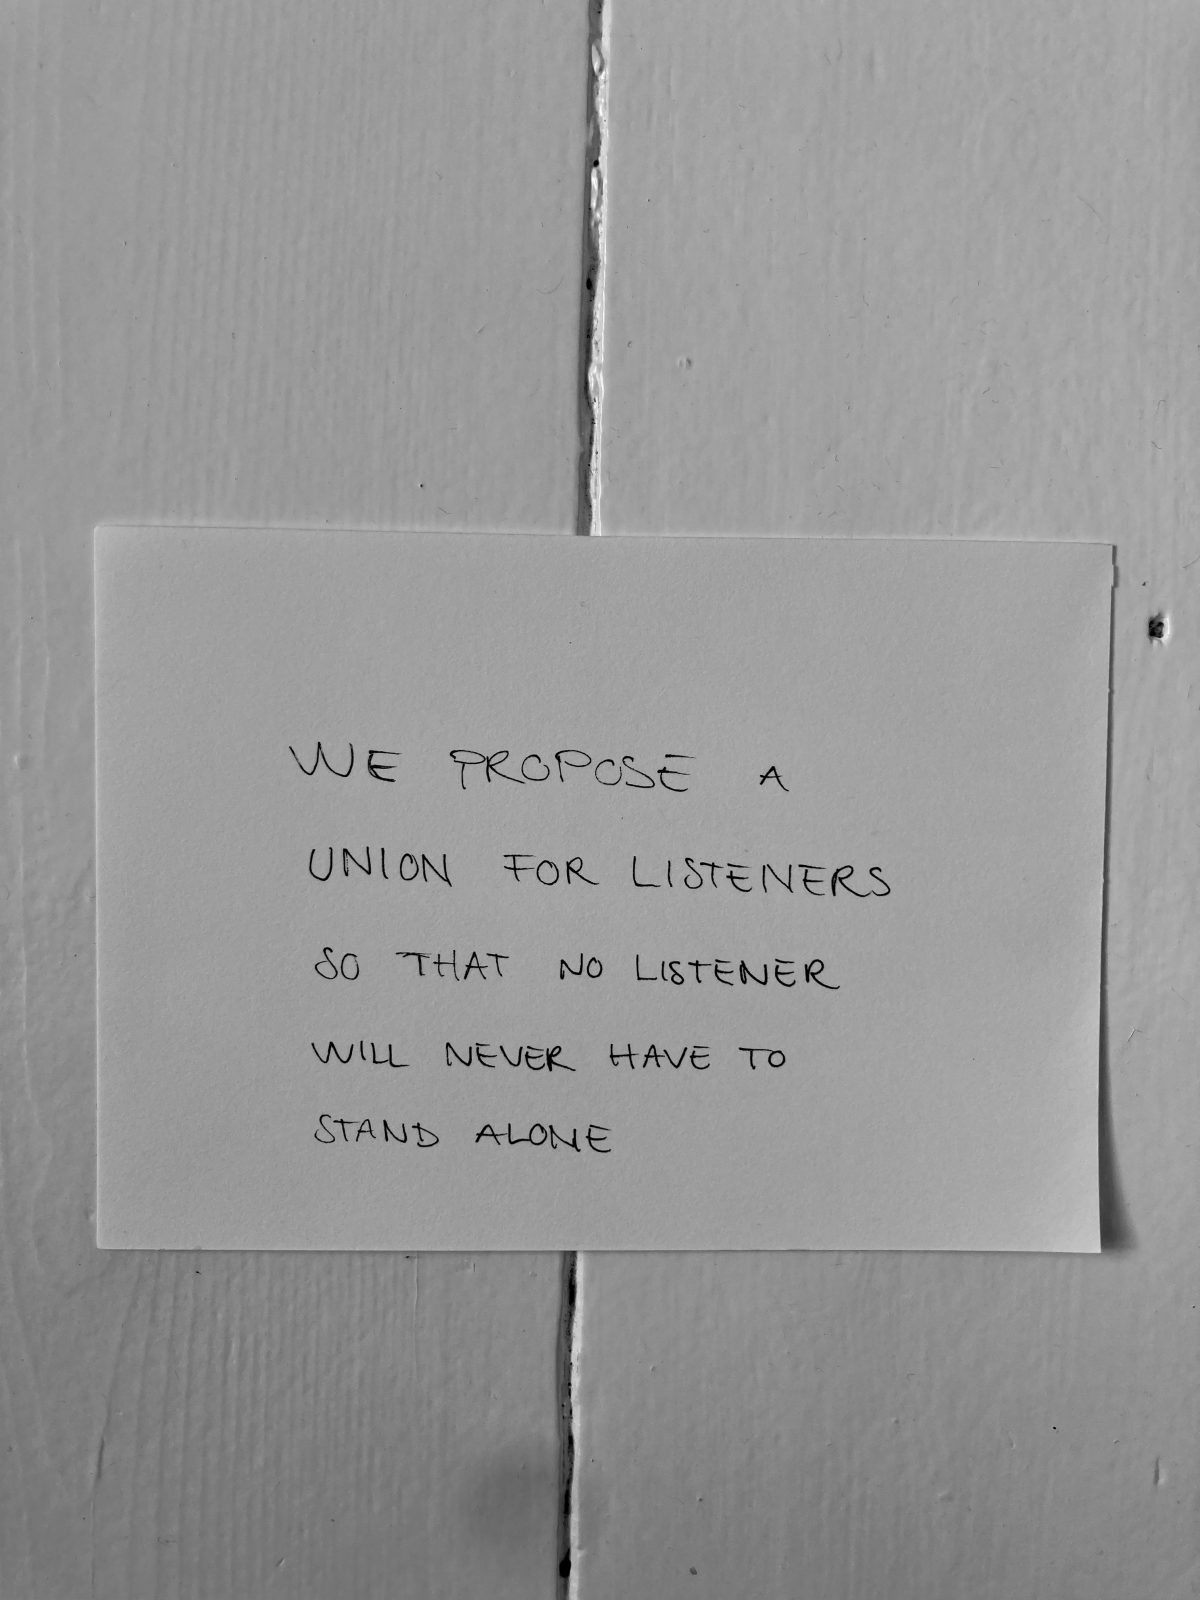 WE PROPOSE A
UNION FOR LISTENERS
SO THAT NO LISTENER
WILL NEVER HAVE TO
STAND ALONE